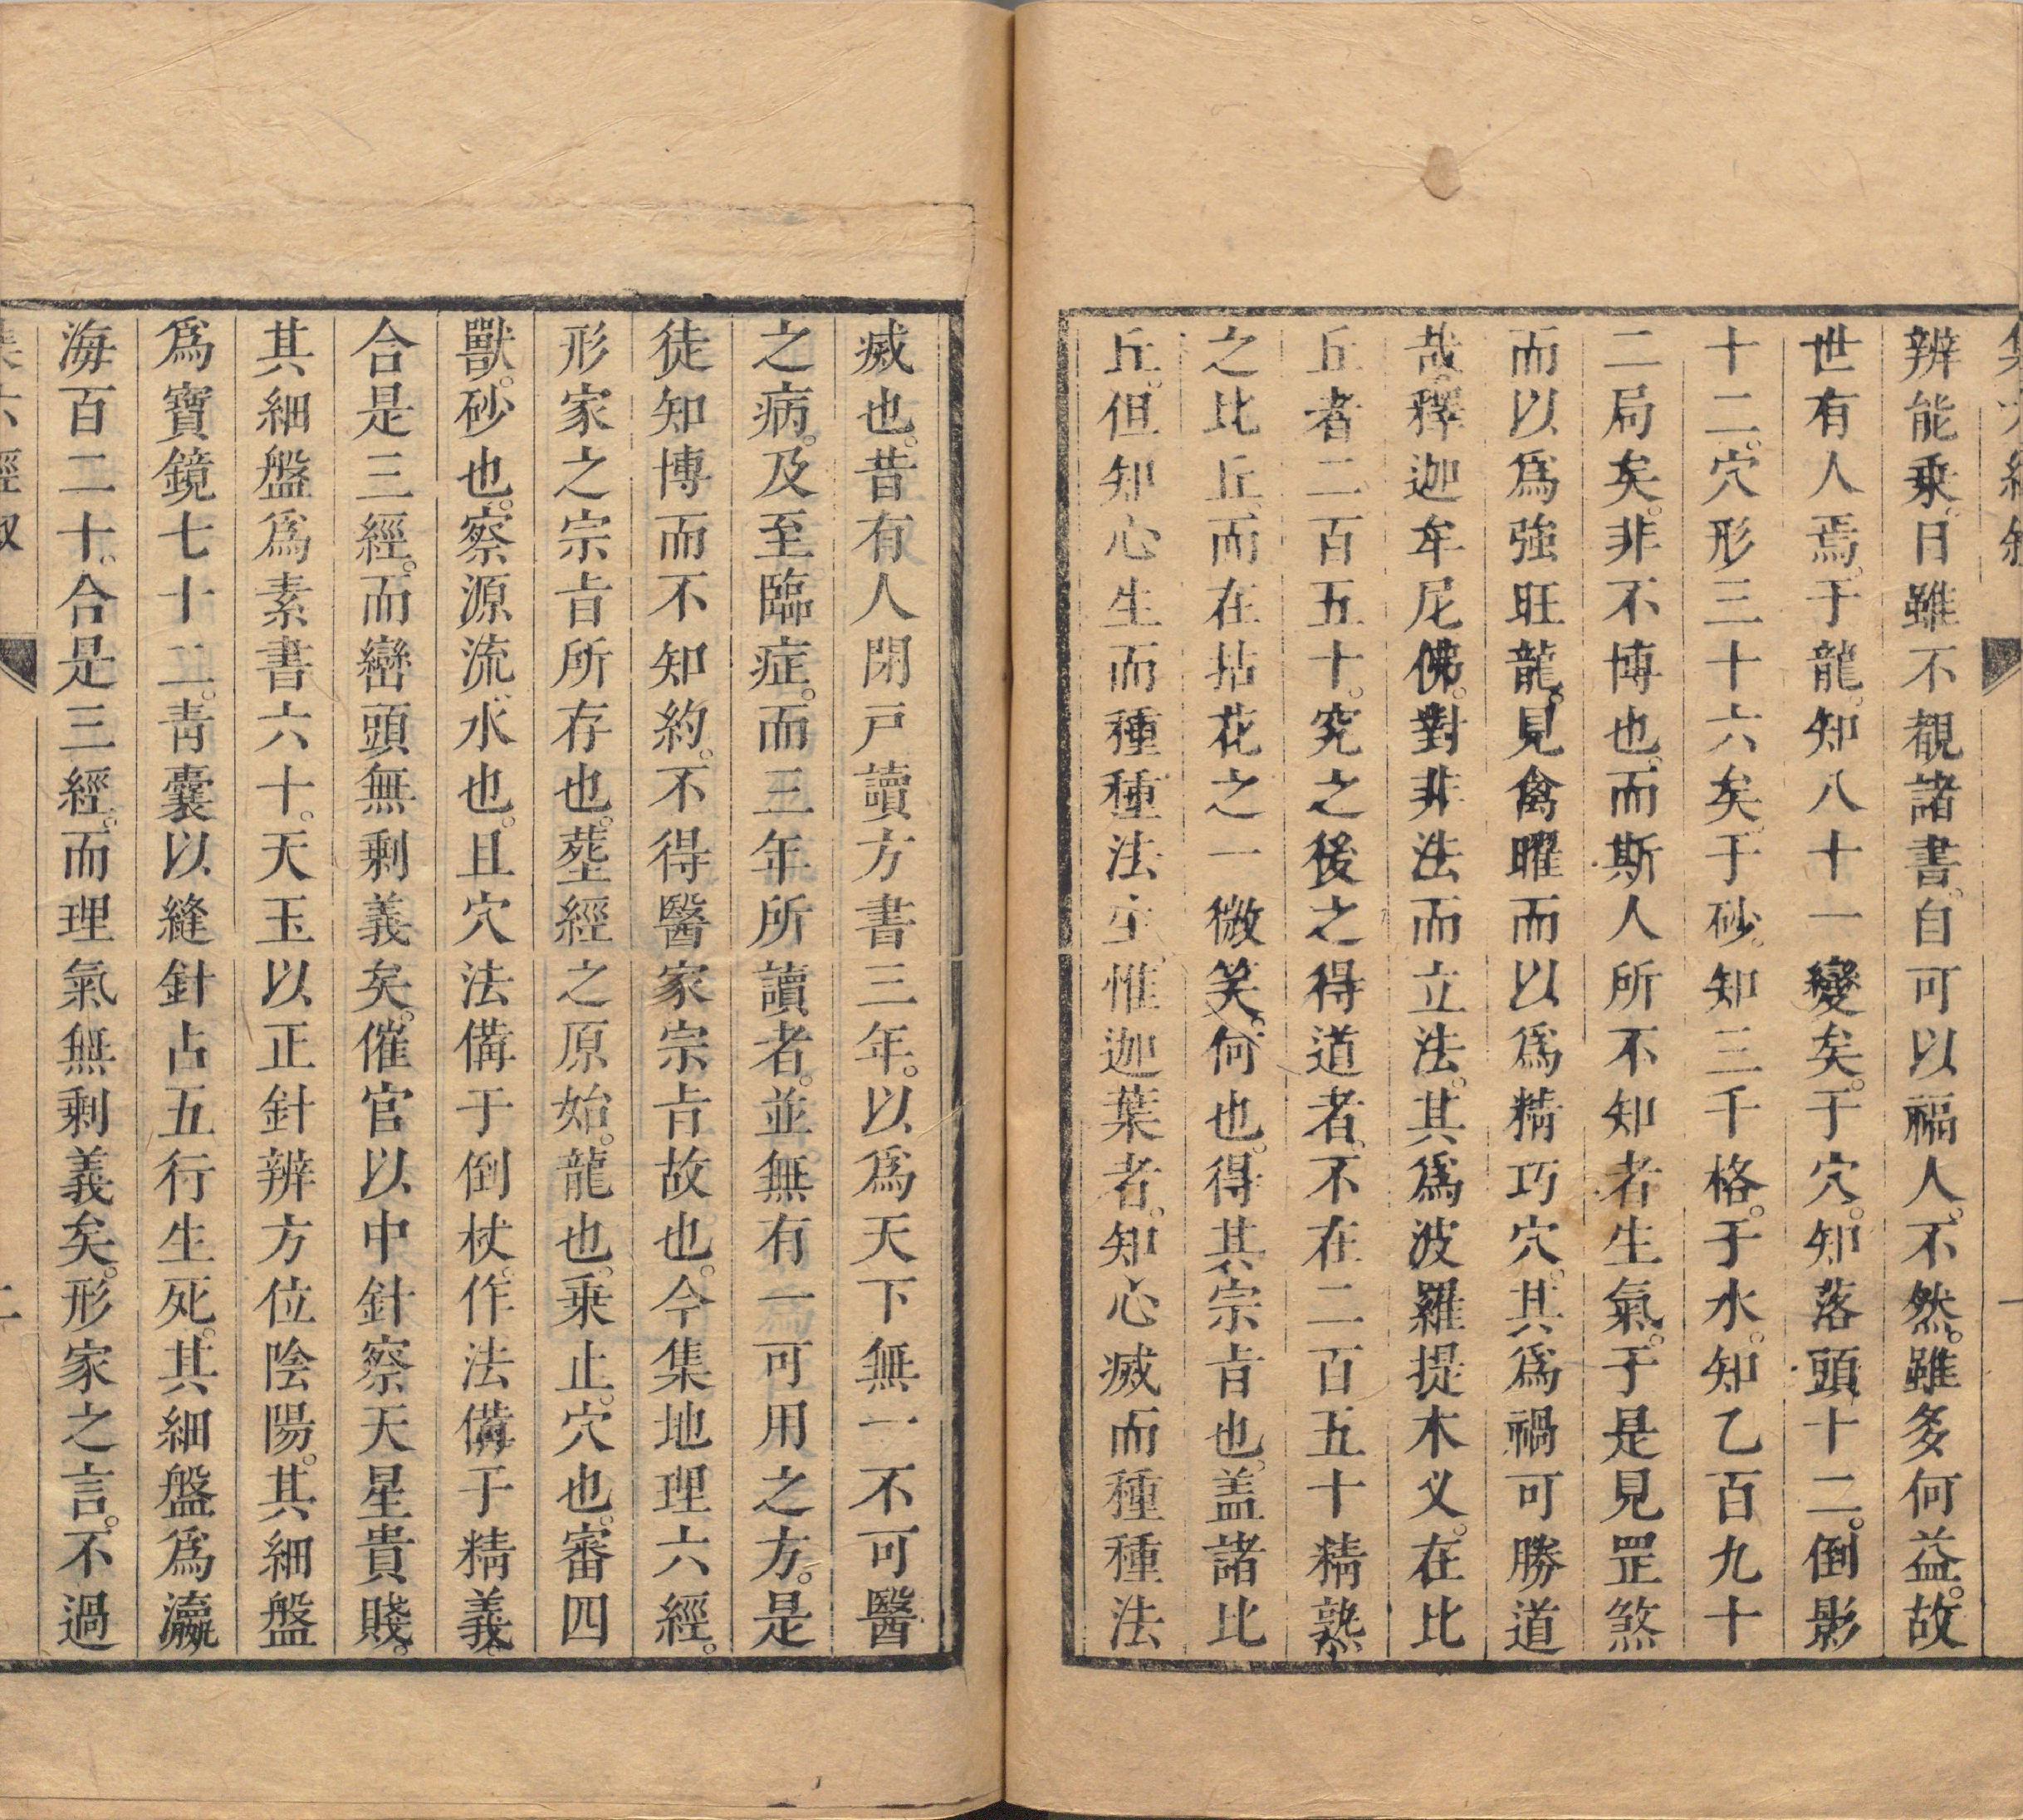 辨能乗。日雖不覩諸書。自可以福人。不然。雖多何益。故
世有人焉。于龍。知八十一變矣。于穴。知落頭十二。倒影
十二。穴形三十六矣。于砂。知三千格。于水。知乙百九十
二局矣。非不博也。而斯人所不知者生氣。于是見罡煞
而以爲強旺龍。見禽曜而以爲精巧穴。其爲禍可勝道
哉。釋迦牟尼佛。對非法而立法。其爲波羅提木义。在比
丘者二百五十。究之後之得道者。不在二百五十精熟
之比丘。而在拈花之一微笑。何也。得其宗旨也。盖諸比
丘。但知心生而種種法生。惟迦葉者。知心滅而種種法
滅也。昔有人閉戸讀方書三年。以爲天下無一不可醫
之病。及至臨症。而三年所讀者。並無有一可用之方。是
徒知博而不知約。不得醫家宗旨故也。今集地理六經。
形家之宗旨所存也。塟經之原始。龍也。乗止。穴也。審四
獸。砂也。察源流。水也。且穴法備于倒杖。作法備于精義。
合是三經。而巒頭無剩義矣。催官以中針察天星貴賤。
其細盤爲素書六十。天玉以正針辨方位陰陽。其細盤
爲寶鏡七十二。青囊以縫針占五行生死。其細盤爲瀛
海百二十。合是三經。而理氣無剩義矣。形家之言。不過